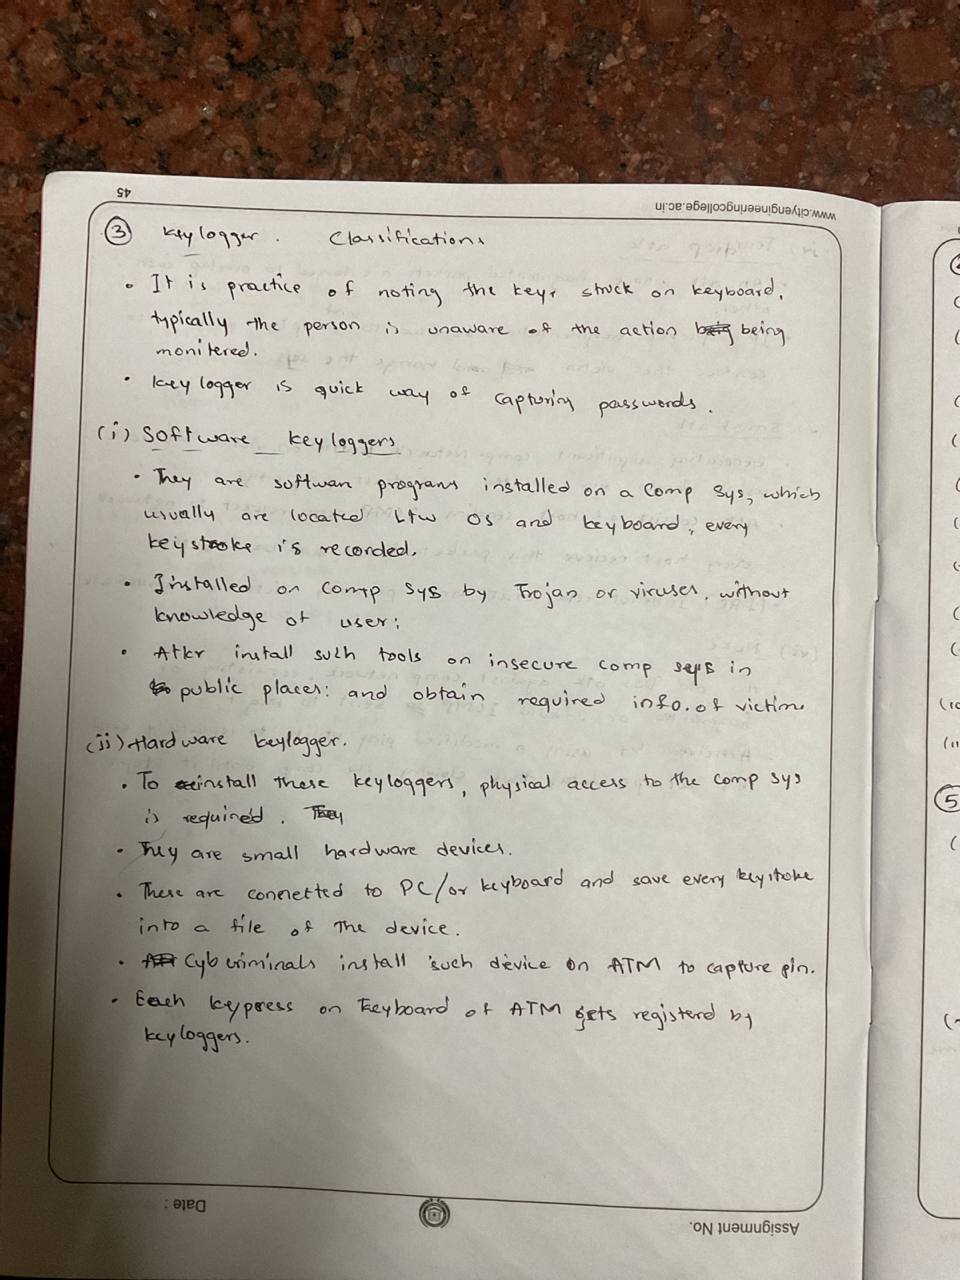 45
www.cityengineeringcollege.ac.in
③ Keylogger. Classifications
• It is practice of noting the keys struck on keyboard,
typically the person is unaware of the action being
monitered.
• Key logger is quick way of capturing passwords.
(i) Software keyloggers
• They are software programs installed on a Comp Sys, which
usually are located btw OS and keyboard, every
keystroke is recorded.
• Installed on comp sys by Trojan or viruses, without
knowledge of user;
• Atkr install such tools on insecure comp sys in
public places: and obtain required info. of victim
(ii) Hardware keylogger.
• To install these keyloggers, physical access to the comp sys
is required. They
• They are small hardware devices.
• These are connetted to PC/or keyboard and save every keystroke
into a file of the device.
• Cyb criminals install such device on ATM to capture pin.
• Each keypress on keyboard of ATM gets registerd by
keyloggers.
Date :
Assignment No.
5